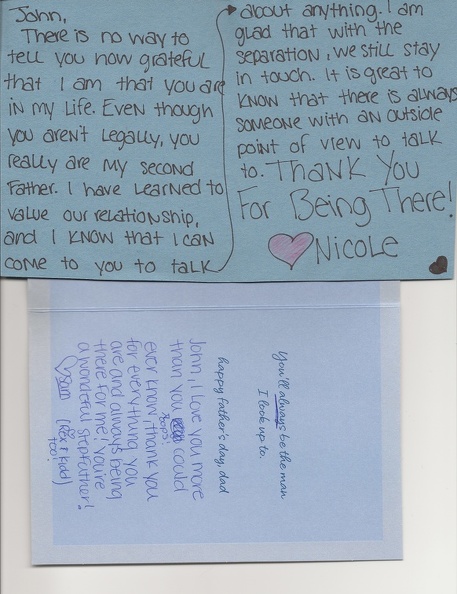 John,
There is no way to
tell you how grateful
that I am that you are
in my life. Even though
you aren't legally, you
really are my second
Father. I have learned to
value our relationship,
and I know that I can
come to you to talk
about anything. I am
glad that with the
separation, we still stay
in touch. It is great to
know that there is always
someone with an outside
point of view to talk
to. Thank You
For Being There!
Nicole
You'll always be the man
I look up to.
happy father's day, dad
John, I love you more
than you could
oops!
ever know; thank you
for everything you
are and always being
there for me! You're
a wonderful stepfather!
Sam (Rex & Kidd
too!)